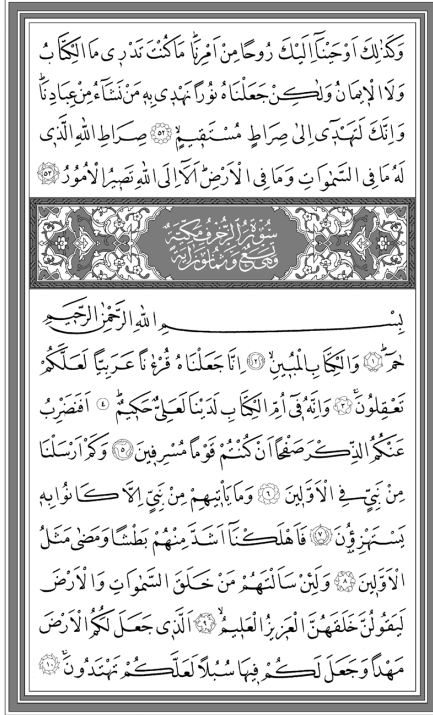 وَكَذٰلِكَ اَوْحَيْنَٓا اِلَيْكَ رُوحًا مِنْ اَمْرِنَاۜ مَا كُنْتَ تَدْرٖي مَا الْكِتَابُ
وَلَا الْاٖيمَانُ وَلٰكِنْ جَعَلْنَاهُ نُورًا نَهْدٖي بِهٖ مَنْ نَشَٓاءُ مِنْ عِبَادِنَاۜ
وَاِنَّكَ لَتَهْدٖٓي اِلٰى صِرَاطٍ مُسْتَقٖيمٍۙ ﴿٥٢﴾ صِرَاطِ اللّٰهِ الَّذٖي
لَهُ مَا فِي السَّمٰوَاتِ وَمَا فِي الْاَرْضِۜ اَلَٓا اِلَى اللّٰهِ تَصٖيرُ الْاُمُورُ ﴿٥٣﴾
سُورَةُ الزُّخْرُفِ مَكِّيَّةٌ
وَهِيَ تِسْعٌ وَثَمَانُونَ اٰيَةً
بِسْمِ اللّٰهِ الرَّحْمٰنِ الرَّحٖيمِ
حٰمٓۜ ﴿١﴾ وَالْكِتَابِ الْمُبٖينِۙ ﴿٢﴾ اِنَّا جَعَلْنَاهُ قُرْءٰنًا عَرَبِيًّا لَعَلَّكُمْ
تَعْقِلُونَۚ ﴿٣﴾ وَاِنَّهُ فٖٓي اُمِّ الْكِتَابِ لَدَيْنَا لَعَلِيٌّ حَكٖيمٌۜ ﴿٤﴾ اَفَنَضْرِبُ
عَنْكُمُ الذِّكْرَ صَفْحًا اَنْ كُنْتُمْ قَوْمًا مُسْرِفٖينَ ﴿٥﴾ وَكَمْ اَرْسَلْنَا
مِنْ نَبِيٍّ فِي الْاَوَّلٖينَ ﴿٦﴾ وَمَا يَأْتٖيهِمْ مِنْ نَبِيٍّ اِلَّا كَانُوا بِهٖ
يَسْتَهْزِؤُ۫نَ ﴿٧﴾ فَاَهْلَكْنَٓا اَشَدَّ مِنْهُمْ بَطْشًا وَمَضٰى مَثَلُ
الْاَوَّلٖينَ ﴿٨﴾ وَلَئِنْ سَاَلْتَهُمْ مَنْ خَلَقَ السَّمٰوَاتِ وَالْاَرْضَ
لَيَقُولُنَّ خَلَقَهُنَّ الْعَزٖيزُ الْعَلٖيمُۙ ﴿٩﴾ اَلَّذٖي جَعَلَ لَكُمُ الْاَرْضَ
مَهْدًا وَجَعَلَ لَكُمْ فٖيهَا سُبُلًا لَعَلَّكُمْ تَهْتَدُونَۚ ﴿١٠﴾